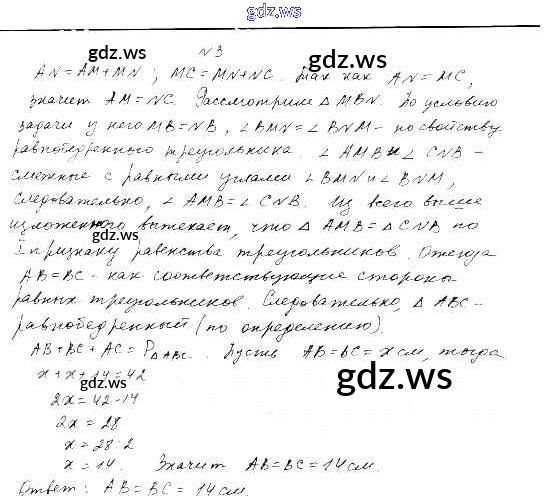 gdz.ws
№3
gdz.ws gdz.ws
AN=AM+MN; MC=MN+NC. Так как AN=MC,
значит AM=NC. Рассмотрим △ MBN. По условию
задачи у него MB=NB, ∠BMN=∠BNM - по свойству
равнобедренного треугольника. ∠AMB и ∠CNB -
смежные с равными углами ∠BMN и ∠BNM,
gdz.ws
следовательно, ∠AMB=∠CNB. Из всего выше
изложенного вытекает, что △AMB=△CNB по
gdz.ws
I признаку равенства треугольников. Отсюда
AB=BC - как соответствующие стороны
равных треугольников. Следовательно, △ABC-
равнобедренный (по определению).
AB+BC+AC=P△ABC. Пусть AB=BC=x см, тогда
x+x+14=42
gdz.ws gdz.ws
2x=42-14
2x=28
x=28:2
x=14. Значит AB=BC=14 см.
Ответ: AB=BC=14 см.
gdz.ws